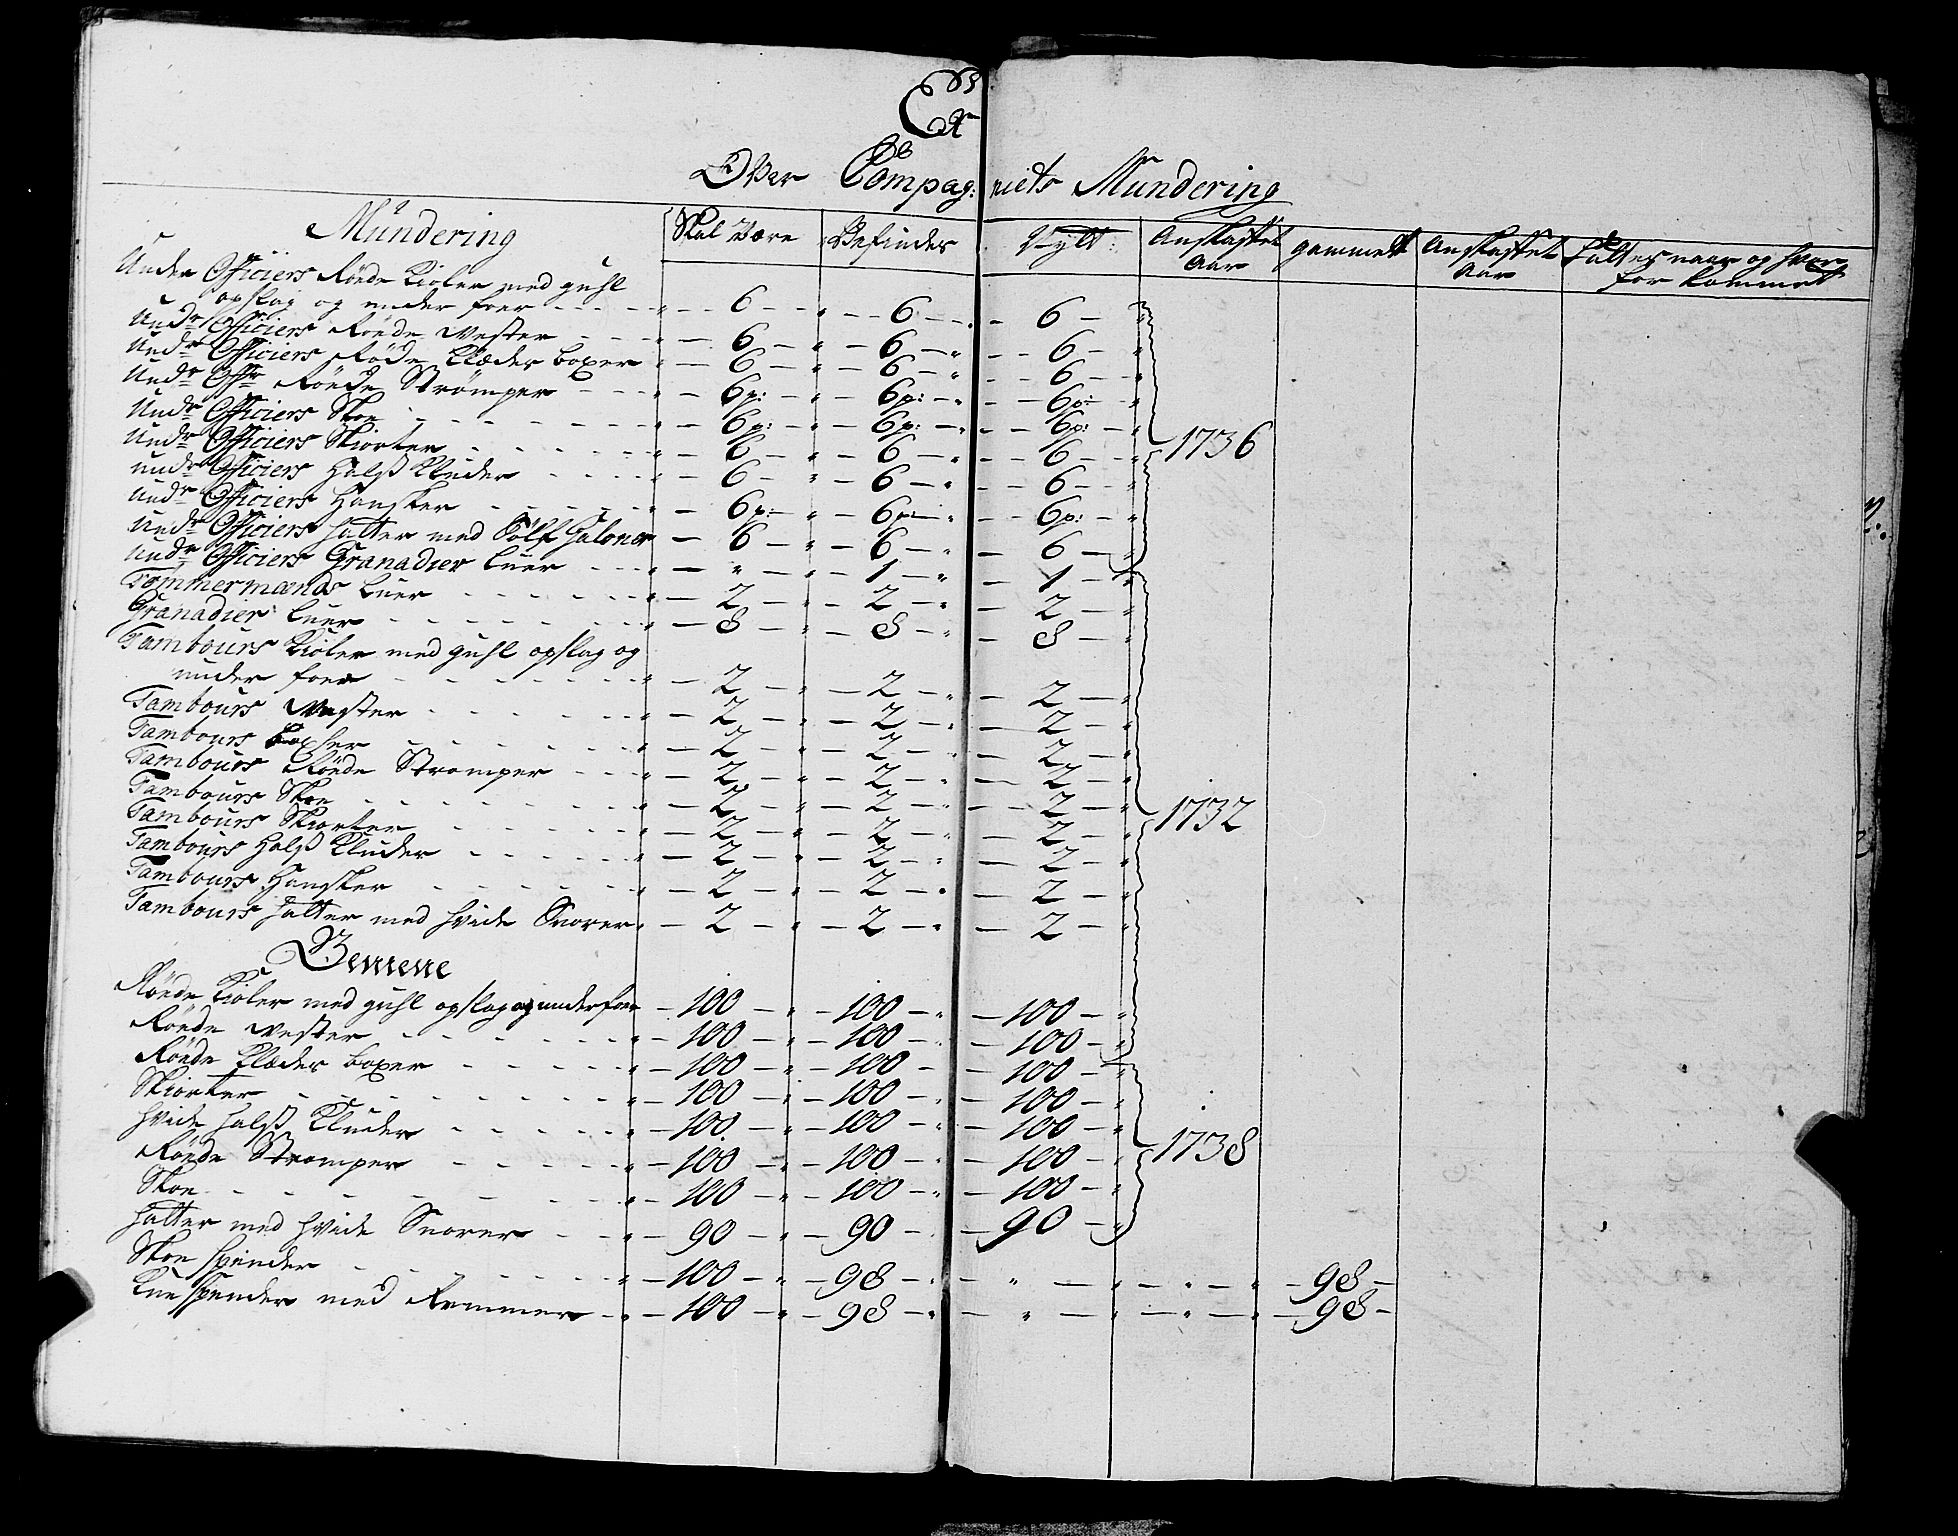 Et
Over Compagniets Mundering
Mundering Skal Være Befindes Nÿtt: Anskaffet Aar gammelt Anskaffet Aar Fattes naar og hvor for kommet
Under Officiers Röede Kioler med guhl
opslag og under foer - - - 6 - 6 - 6
Undr Officiers Röede Vester - - - 6 - 6 - 6
Undr Officiers Röde Klæder boxer - 6 - 6 - 6
Undr Offr Röede Strømper - - - 6p: - 6p: - 6p:
Undr Officiers Skoe - - - 6p: - 6p: - 6p:
Undr Officiers Skiorter - - - 6 - 6 - 6 1736
undr Officiers Halß Kluder - - - 6 - 6 - 6
undr Officiers Hansker - - - 6p: - 6p: - 6p:
Undr Officiers hatter med Sölf Galoner - 6 - 6 - 6
Undr Officiers Granadier Luer - - - " - 1 - 1
Tømmermænds Luer - - - 2 - 2 - 2
Granadier Luer - - - 8 - 8 - 8
Tambours Kioler med guhl opslag og
under foer - - - 2 - 2 - 2
Tambours Vester - - - 2 - 2 - 2
Tambours boxser - - - 2 - 2 - 2
Tambours Röede Strømper - - - 2 - 2 - 2
Tambours Skoe - - - 2 - 2 - 2
Tambours Skiorter - - - 2 - 2 - 2 1732
Tambours Halß Kluder - - - 2 - 2 - 2
Tambours Hansker - - - 2 - 2 - 2
Tambours hatter med hvide Snorer - 2 - 2 - 2
Röede Kioler med guhl opslag og underfoer - 100 - 100 - 100
Röede vester - - - 100 - 100 - 100
Röede Klæder boxer - - - 100 - 100 - 100
Skiorter - - - 100 - 100 - 100
hvide halß Kluder - - - 100 - 100 - 100
Röede Strømper - - - 100 - 100 - 100 1738
Skoe - - - 100 - 100 - 100
hatter med hvide Snorer - - 90 - 90 - 90
Skoe spender - - - 100 - 98 - " - " - 98
Knespender med Remmer - 100 - 98 - " - " - 98